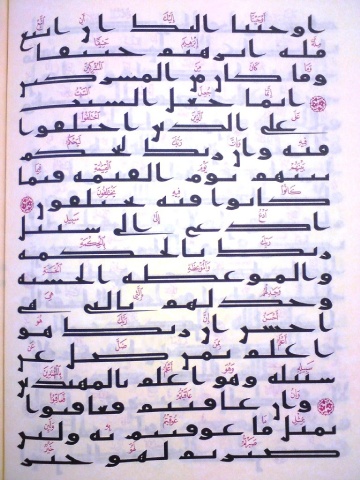 اوحينا اليك ان اتبع
ملة ابرهيم حنيفا
وما كان من المشركين
انما جعل السبت
على الذين اختلفوا
فيه وان ربك ليحكم
بينهم يوم القيمة فيما
كانوا فيه يختلفون
ادع الى سبيل
ربك بالحكمة
والموعظة الحسنة
وجدلهم بالتي هي
احسن ان ربك هو
اعلم بمن ضل عن
سبيله وهو اعلم بالمهتدين
وان عاقبتم فعاقبوا
بمثل ما عوقبتم به ولئن
صبرتم لهو خير